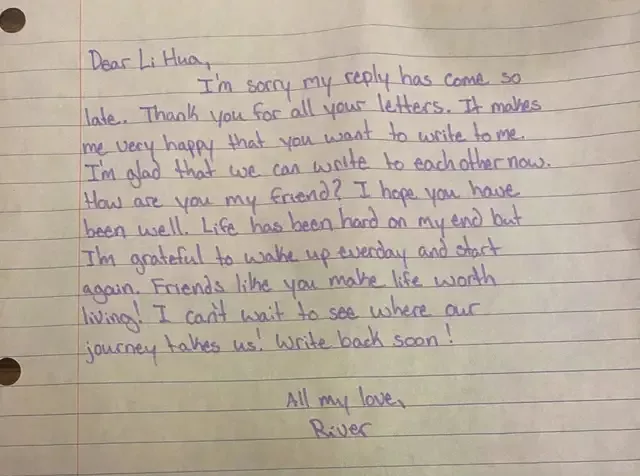 Dear Li Hua,
I'm sorry my reply has come so
late. Thank you for all your letters. It makes
me very happy that you want to write to me.
I'm glad that we can write to each other now.
How are you my friend? I hope you have
been well. Life has been hard on my end but
I'm grateful to wake up everday and start
again. Friends like you make life worth
living! I can't wait to see where our
journey takes us! Write back soon!
All my love,
River